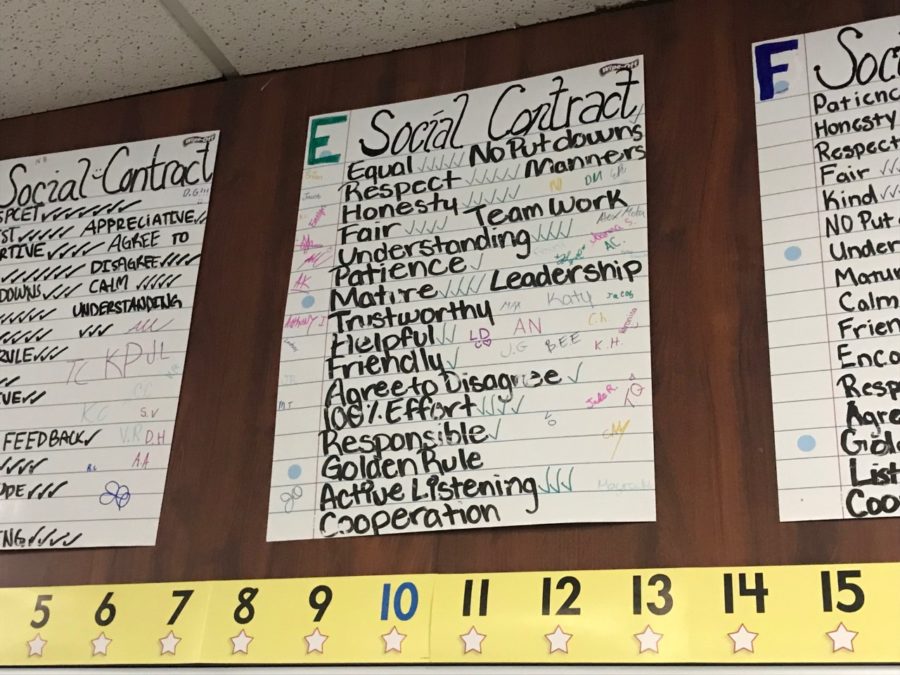 Social Contract
SPCET ✓✓✓✓✓✓✓
ST ✓✓✓✓ APPRECIATIVE ✓✓
RTIVE ✓✓✓ AGREE TO
✓✓✓✓✓✓✓ DISAGREE ✓✓✓✓
DOWNS ✓✓✓ CALM ✓✓✓✓✓
✓✓✓✓✓ UNDERSTANDING
RULE ✓✓✓
TC KPJL
VE ✓✓
K.C S.V
FEEDBACK ✓ V.R D.H
A.A
UDE ✓✓✓
NG ✓✓✓✓
E Social Contract
Wipe-off
Equal ✓✓✓✓ No Put downs
Respect ✓✓✓✓✓ Manners
Honesty ✓✓✓✓✓ N DM
Fair ✓✓✓✓ Team Work
Understanding ✓✓✓✓
Patience ✓ AC.
AK
Matire ✓✓✓✓ Leadership
Trustworthy Katy Jacob
Anthony I
Helpful ✓✓ LD AN
Friendly ✓ J.G BEE K.H.
Agree to Disagree ✓
MT 100% Effort ✓✓✓✓ Jada R.
Responsible ✓
Golden Rule
Active Listening ✓✓✓
Cooperation
F Soci
Patience
Honesty
Respect
Fair ✓✓
Kind ✓✓
NO Put d
Under
Matur
Calm
Frien
Enco
Resp
Agre
Gold
List
Coo
5 6 7 8 9 10 11 12 13 14 15